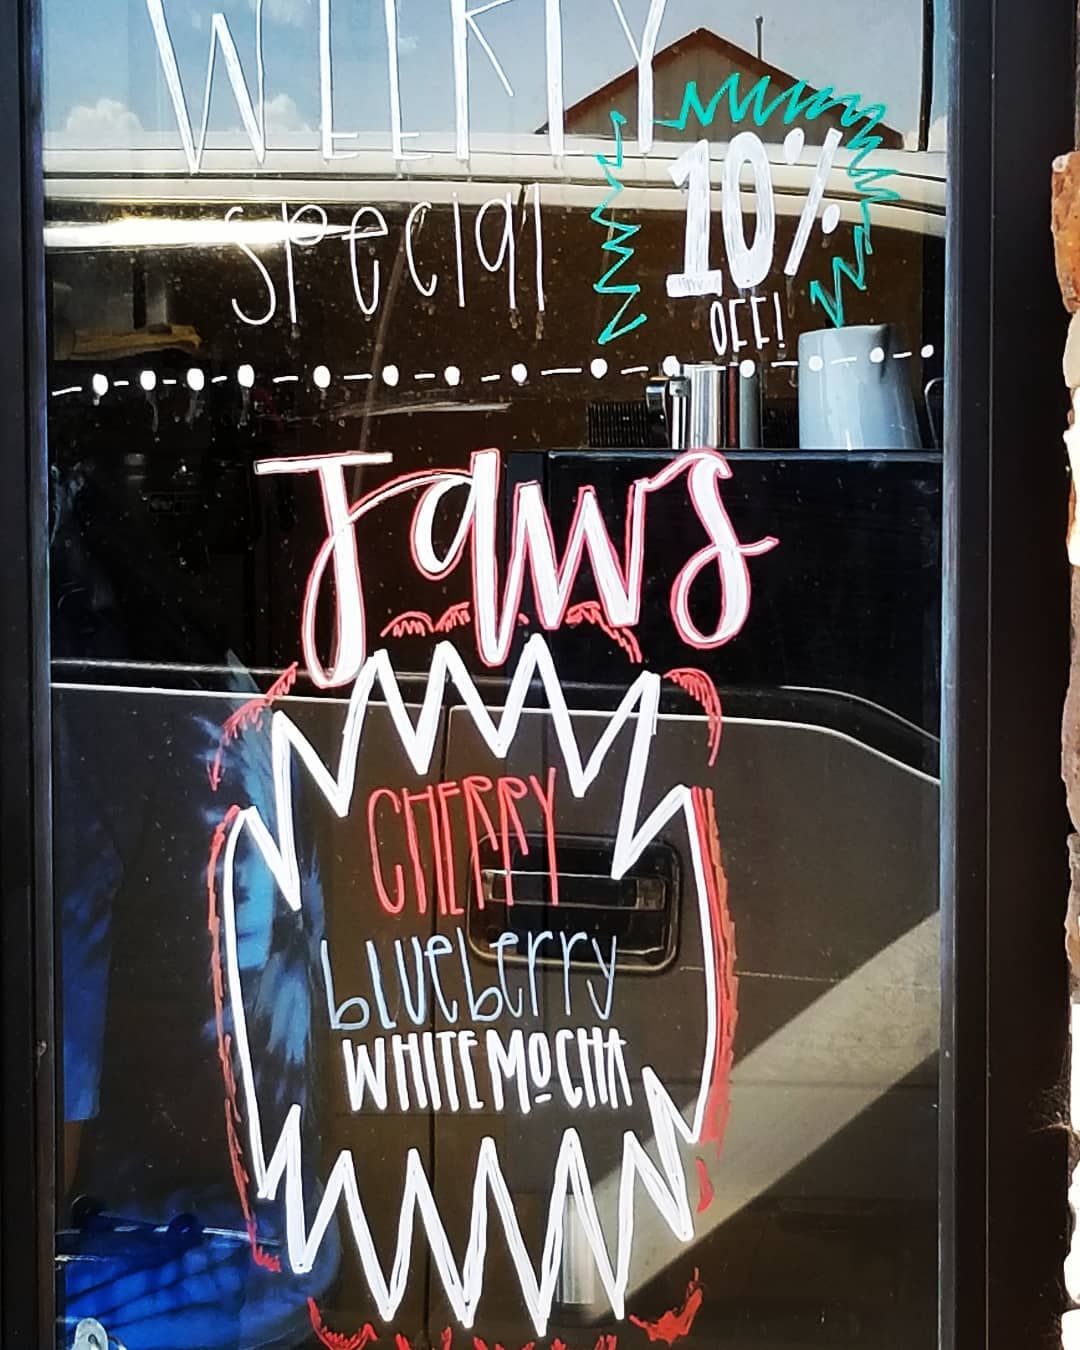 WEEKLY
special
10%
OFF!
Jaws
CHERRY
blueberry
WHITE MOCHA